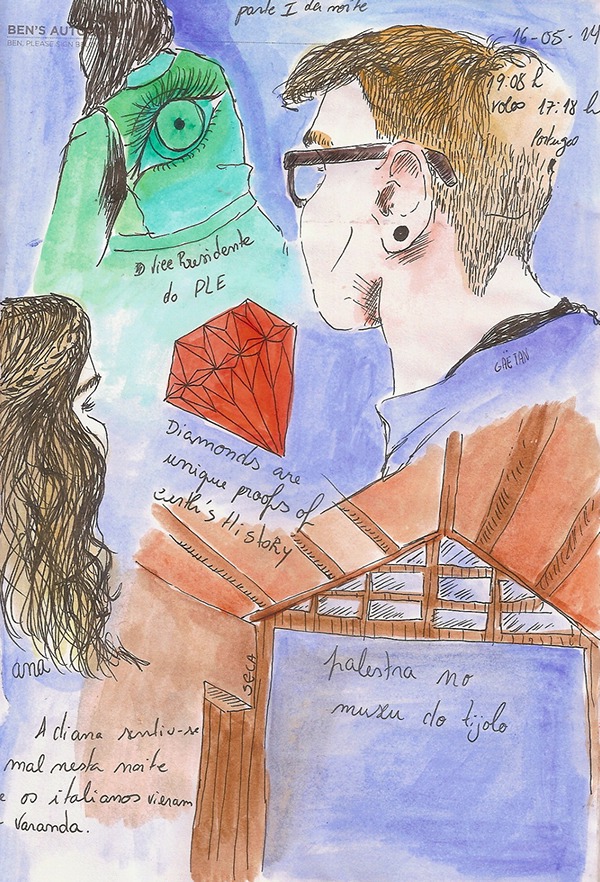 parte I da noite
BEN'S AUTO
BEN, PLEASE
16-05-14
19:08 h
voos 17:18 h
Portugal
O Vice Presidente
do PLE
GAËTAN
Diamonds are
unique proofs of
Earth's History
ana
SECA
palestra no
museu do tijolo
A diana sentiu-se
mal nesta noite
e os italianos vieram
varanda.